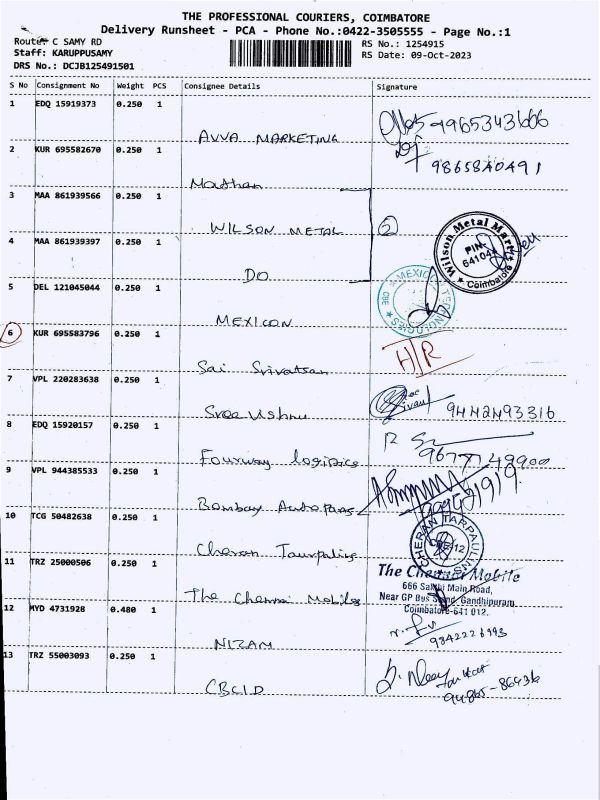 THE PROFESSIONAL COURIERS, COIMBATORE
Delivery Runsheet - PCA - Phone No.:0422-3505555 - Page No.:1
Route: C SAMY RD
Staff: KARUPPUSAMY
DRS No.: DCJB125491501
RS No.: 1254915
RS Date: 09-Oct-2023
S No Consignment No Weight PCS Consignee Details Signature
1 EDQ 15919373 0.250 1 AVVA MARKETING 9965343666
2 KUR 695582670 0.250 1 Mathan 9865840491
3 MAA 861939566 0.250 1 WILSON METAL 2
Wilson Metal Mart
PIN-
Coimbatore
4 MAA 861939397 0.250 1 DO
5 DEL 121045044 0.250 1 MEXICON
CBE
6 KUR 695583796 0.250 1 Sai Srivatsan H/R
7 VPL 220283638 0.250 1 Sree Vishnu 9442493316
8 EDQ 15920157 0.250 1 Fourway logistics
9 VPL 944385533 0.250 1 Bombay Auto Parts
10 TCG 50482638 0.250 1 Cheran Tarpaulins
CHERAN TARPAULINS
11 TRZ 25000506 0.250 1 The Chennai Mobiles
The Chennai Mobile
666 Sakthi Main Road,
Near GP Bus Stand, Gandhipuram,
Coimbatore-641 012.
12 MYD 4731928 0.480 1 NIZAM 9342226993
13 TRZ 55003093 0.250 1 CBCID 94865-86936